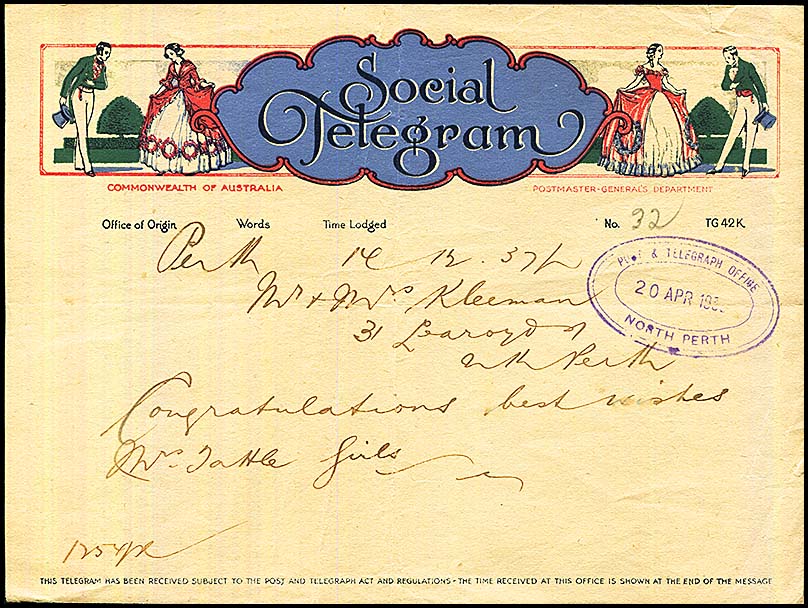 Social
Telegram
COMMONWEALTH OF AUSTRALIA
POSTMASTER-GENERAL'S DEPARTMENT
Office of Origin Words Time Lodged No. 32 TG 42K
Perth 14 12.37p
POST & TELEGRAPH OFFICE
20 APR 193
NORTH PERTH
Mr & Mrs Kleeman
31 Learoyd St
Nth Perth
Congratulations best wishes
Mrs Tattle Girls
THIS TELEGRAM HAS BEEN RECEIVED SUBJECT TO THE POST AND TELEGRAPH ACT AND REGULATIONS - THE TIME RECEIVED AT THIS OFFICE IS SHOWN AT THE END OF THE MESSAGE